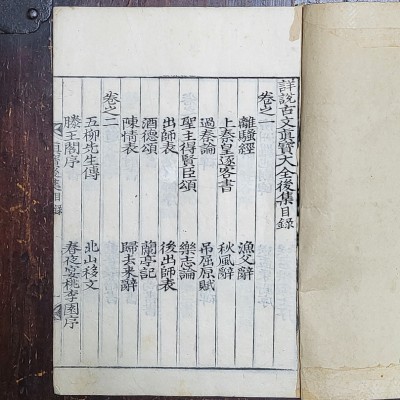 詳說古文眞寶大全後集目錄
卷之一
離騷經 漁父辭
上秦皇逐客書 秋風辭
過秦論 吊屈原賦
聖主得賢臣頌 樂志論
出師表 後出師表
酒德頌 蘭亭記
陳情表 歸去來辭
卷之二
五柳先生傳 北山移文
滕王閣序 春夜宴桃李園序
眞寶後集目錄